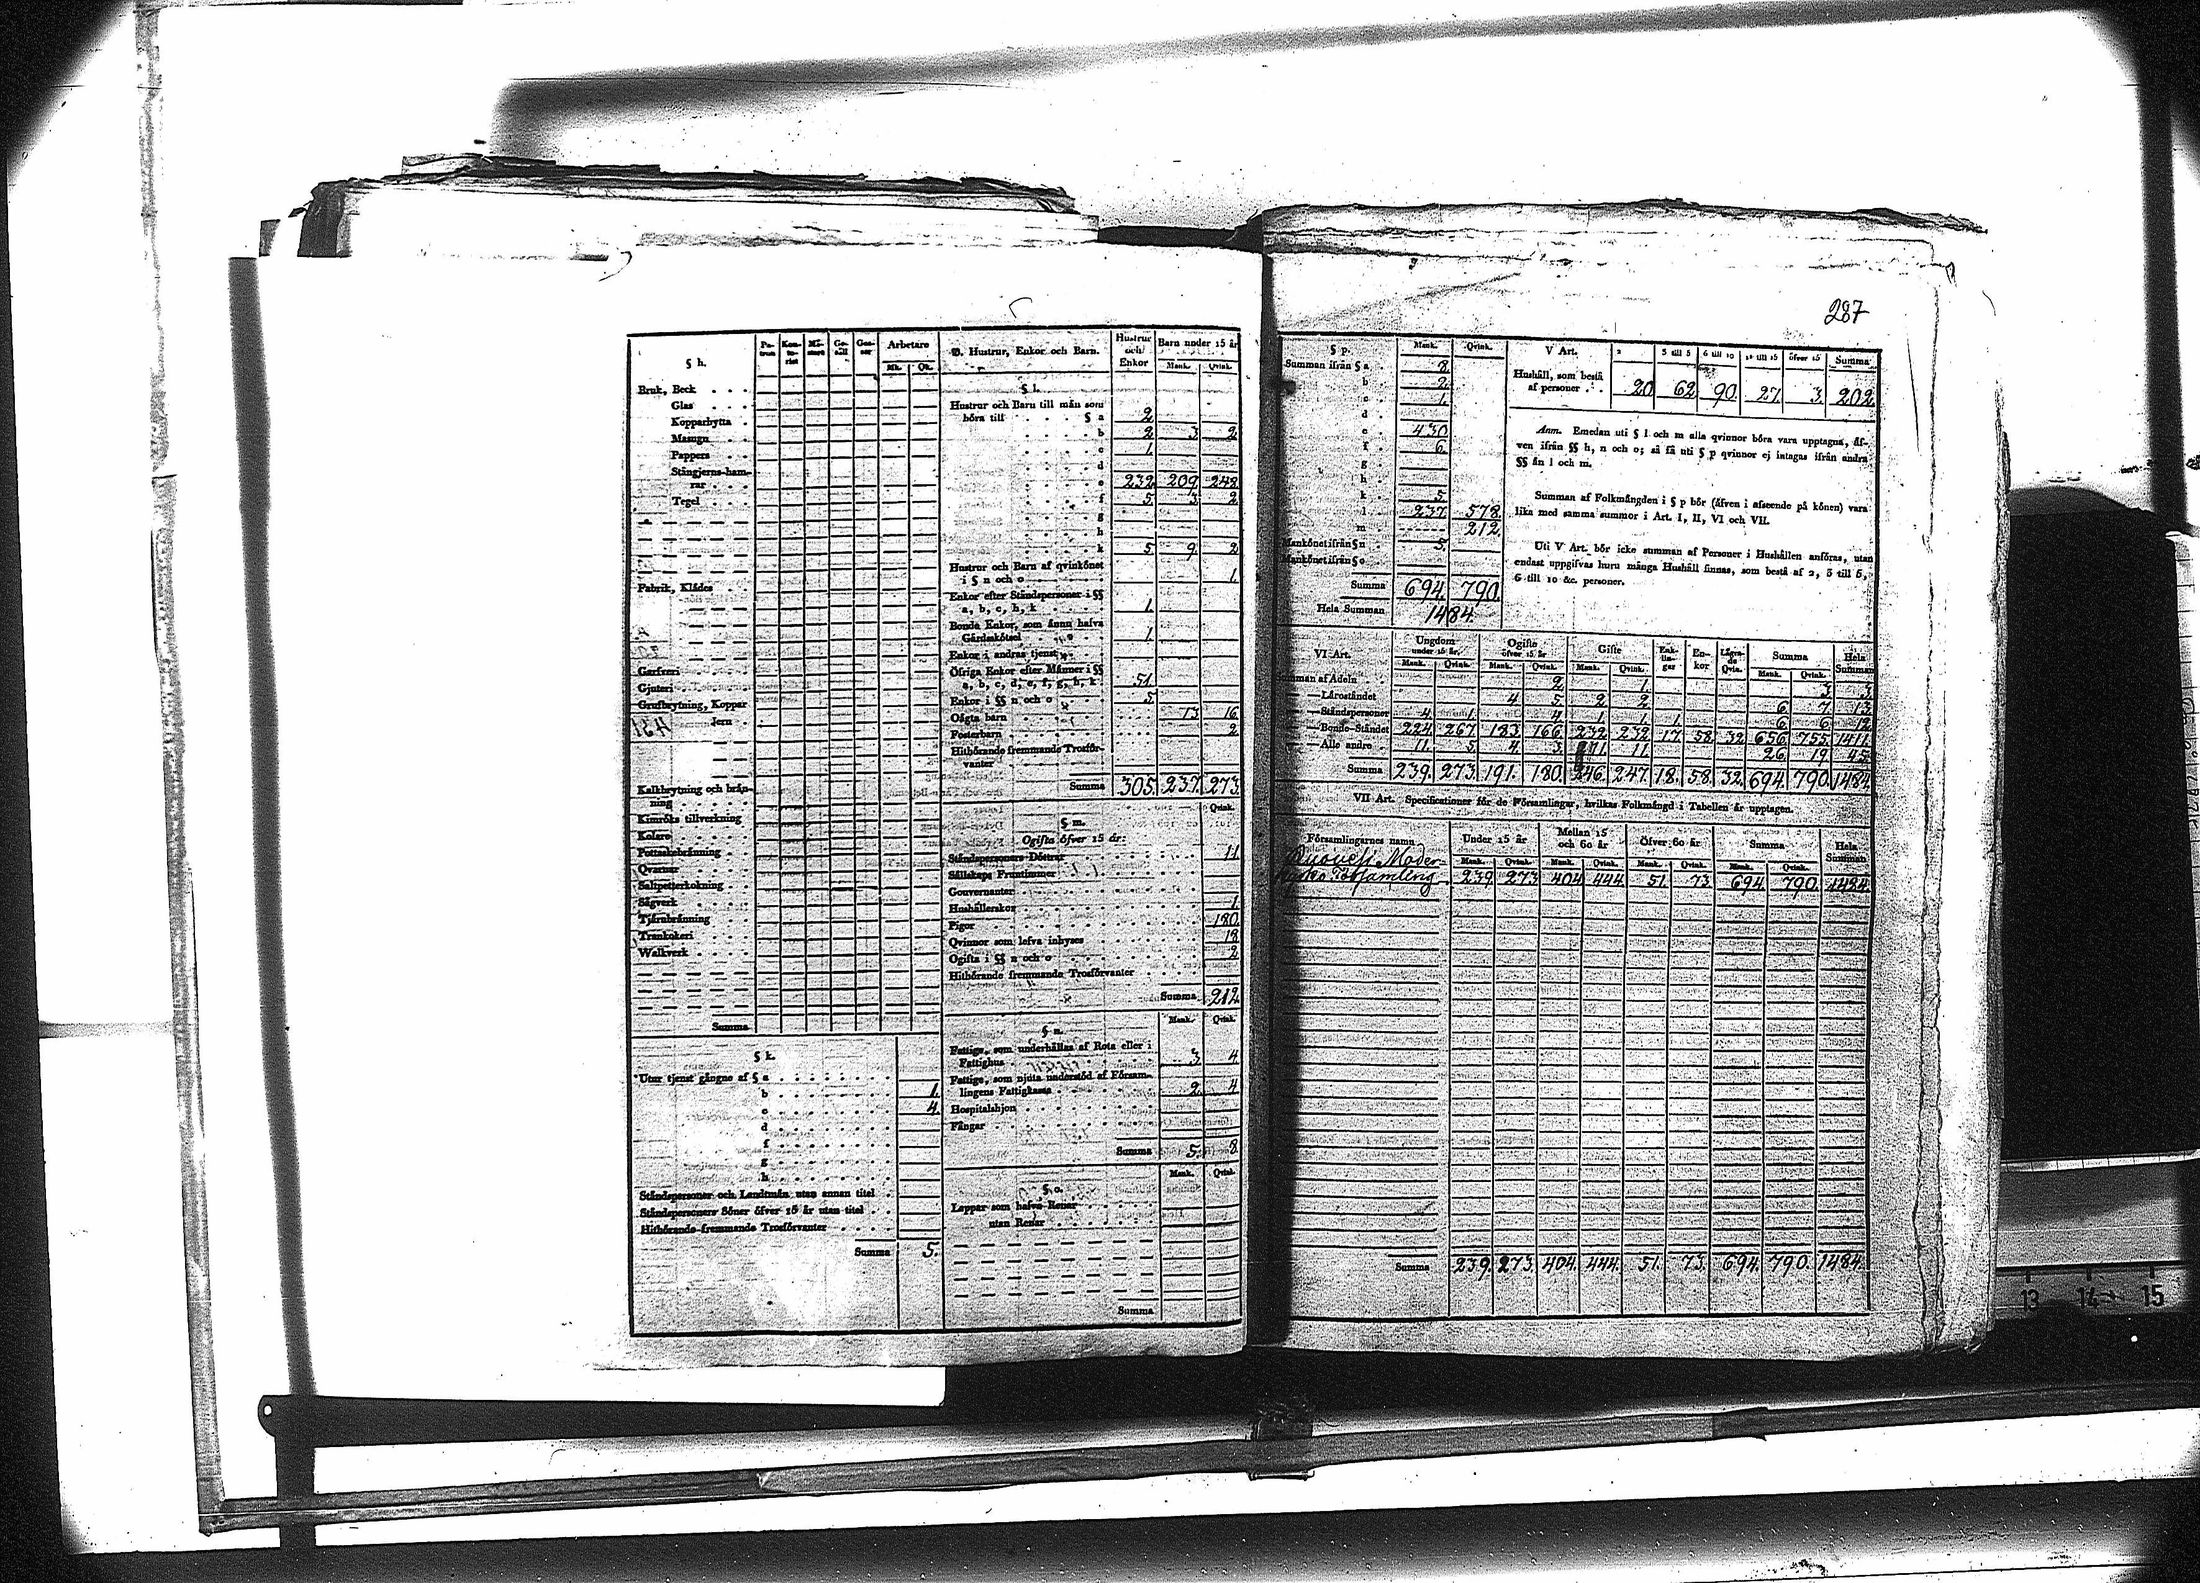 287
§ h.
Pa-
tron
Kon-
to-
rist
Mä-
stare
Ge-
säll
Gos-
sar
Arbetare
Mk. Qk.
Bruk, Beck
Glas
Kopparhytta
Masugn
Pappers
Stångjerns-ham-
rar
Tegel
Fabrik, Klädes
Garfveri
Gjuteri
Grufbrytning, Koppar
Jern
Kalkbrytning och brän-
ning
Kimröks tillverkning
Kolare
Pottaskebränning
Qvarnar
Saltpetterkokning
Sågverk
Tjärubränning
Trankokeri
Walkverk
Summa
§ k.
Utur tjenst gångne af § a
b 1.
c 4.
d
f
g
h
Ståndspersoner och Landtmän utan annan titel
Ståndspersoners Söner öfver 15 år utan titel
Hithörande fremmande Trosförvanter
Summa 5.
B. Hustrur, Enkor och Barn.
Hustrur
och
Enkor
Barn under 15 år
Mank. Qvink.
§ l.
Hustrur och Barn till män som
höra till § a 2
b 2 3 2
c 1.
d
e 232 209 248
f 5 3 2
g
h
k 5 9 2
Hustrur och Barn af qvinkönet
i § n och o 1.
Enkor efter Ståndspersoner i §§
a, b, c, h, k 1.
Bonde Enkor, som ännu hafva
Gårdsskötsel 1.
Enkor i andras tjenst
Öfriga Enkor efter Männer i §§
a, b, c, d, e, f, g, h, k 51.
Enkor i §§ n och o 5.
Oägta barn 13 16
Fosterbarn 2
Hithörande fremmande Trosför-
vanter
Summa 305. 237. 273.
Qvink.
§ m.
Ogifta öfver 15 år:
Ståndspersoners Döttrar 11
Sällskaps Fruntimmer
Gouvernanter
Hushållerskor 1.
Pigor 180
Qvinnor som lefva inhyses 18
Ogifta i §§ n och o 2
Hithörande fremmande Trosförvanter
Summa 212.
Mank. Qvink.
§ n.
Fattige, som underhållas af Rota eller i
Fattighus 3 4
Fattige, som njuta understöd af Försam-
lingens Fattigkassa 2. 4
Hospitalshjon
Fångar
Summa 5. 8
Mank. Qvink.
§ o.
Lappar som hafva Renar
utan Renar
Summa
§ p. Mank. Qvink.
Summan ifrån § a 8
b 2.
c 1.
d
e 430
f 6.
g
h
k 5
l 237. 578
m 212.
Mankönet ifrån § n 5.
Mankönet ifrån § o
Summa 694. 790.
Hela Summan 1484.
V Art. 2 3 till 5 6 till 10 11 till 15 öfver 15 Summa
Hushåll, som bestå
af personer 20 62 90. 27. 3. 202.
Anm. Emedan uti § l och m alla qvinnor böra vara upptagna, äf-
ven ifrån §§ h, n och o; så få uti § p qvinnor ej intagas ifrån andra
§§ än l och m.
Summan af Folkmängden i § p bör (äfven i afseende på könen) vara
lika med samma summor i Art. I, II, VI och VII.
Uti V Art. bör icke summan af Personer i Hushållen anföras, utan
endast uppgifvas huru många Hushåll finnas, som bestå af 2, 3 till 5,
6 till 10 &c. personer.
VI Art.
Ungdom
under 15 år.
Ogifte
öfver 15 år
Gifte
Enk-
lin-
gar
En-
kor
Lägra-
de
Qvin.
Summa
Hela
Summan
Mank. Qvink. Mank. Qvink. Mank. Qvink. Mank. Qvink.
Summan af Adeln 2 1. 3 3
Läroståndet 4 5 2 2 6 7 13
Ståndspersoner 4 1 4 1. 1. 1. 6 6 12
Bonde-Ståndet 224. 267. 183 166. 232 232 17. 58. 32. 656. 755. 1411.
Alle andre 11. 5. 4 3. 11. 11. 26. 19. 45.
Summa 239. 273. 191. 180. 246. 247. 18. 58. 32. 694. 790. 1484.
VII Art. Specificationer för de Församlingar, hvilkas Folkmängd i Tabellen är upptagen.
Församlingarnes namn
Under 15 år
Mellan 15
och 60 år
Öfver 60 år
Summa
Hela
Summan
Mank. Qvink. Mank. Qvink. Mank. Qvink. Mank. Qvink.
Moder-
Församling 239. 273. 404 444. 51. 73. 694. 790. 1484.
Summa 239. 273. 404. 444. 51. 73. 694. 790. 1484.
13 14 15